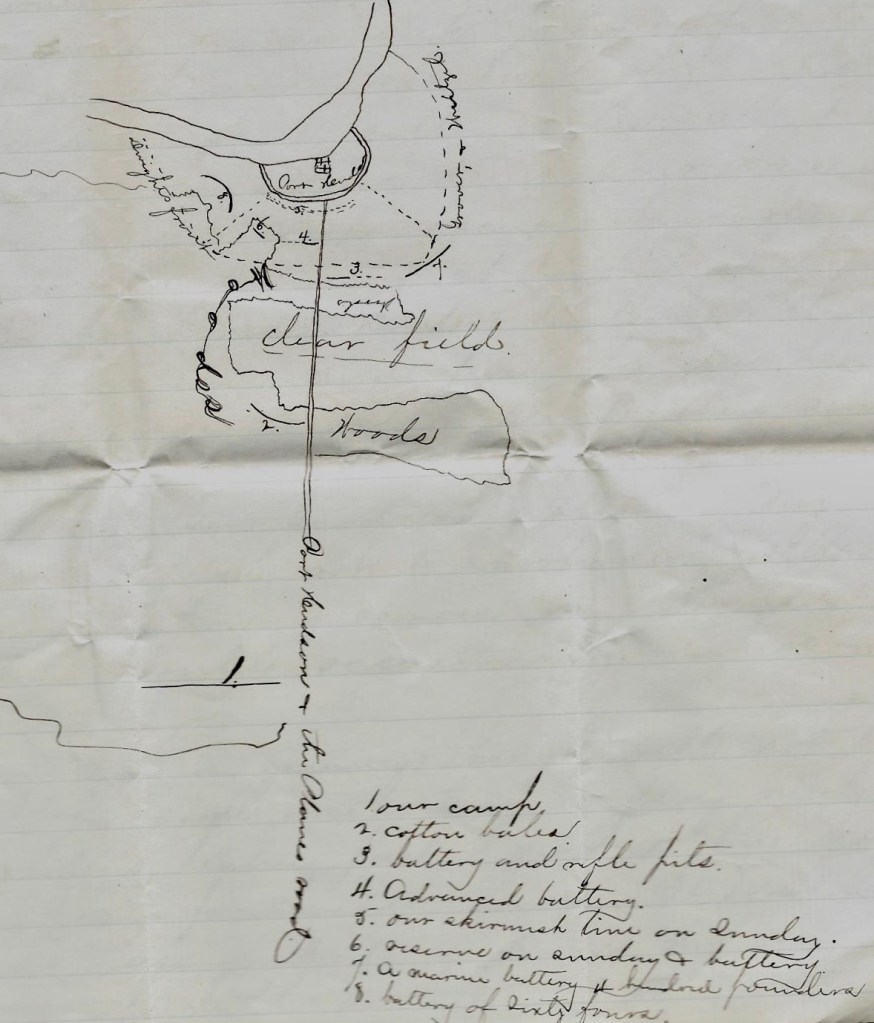 Grover & Weitzel.
Dwights front
Port Huds
8.
6.
5.
4.
3.
7.
woods
clear field.
Woods
2.
woods
Port Hudson & the Plaines road
1.
1 our camp.
2. cotton bales.
3. battery and rifle pits.
4. Advanced battery.
5. our skirmish line on Sunday.
6. reserve on sunday & battery
7. A marine battery 4 hundred pounders
8. battery of sixty fours.